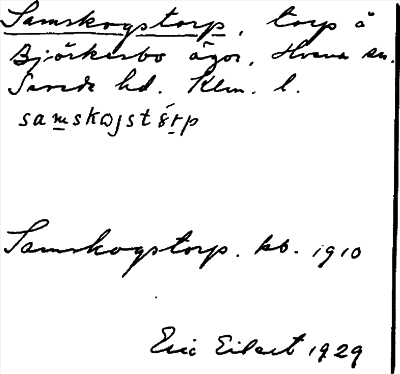 Samskogstorp, torp å
Björkerbo ägor, Hvena sn.
Sevede hd. Klm. l.
samskojstórp
Samskogstorp. kb. 1910
Eric Eilert 1929